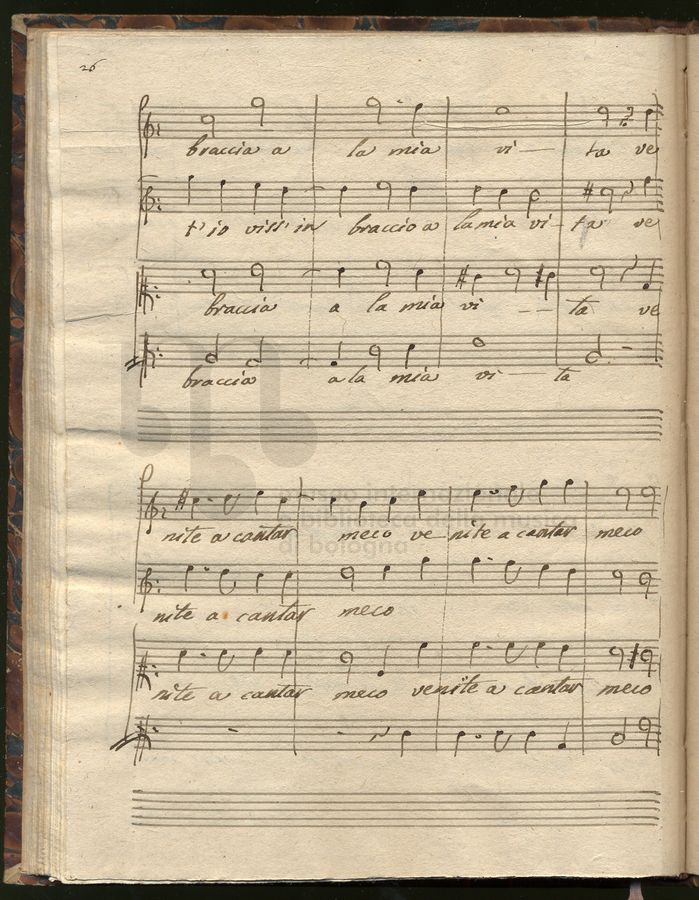 26
braccia a la mia vi — ta ve
t'io viss' in braccio a la mia vi - ta ve
braccia a la mia vi - - ta ve
braccia a la mia vi — ta
nite a cantar meco ve nite a cantar meco
nite a cantar meco
nite a cantar meco venite a cantar meco
museo internazionale
e biblioteca della musica
di bologna